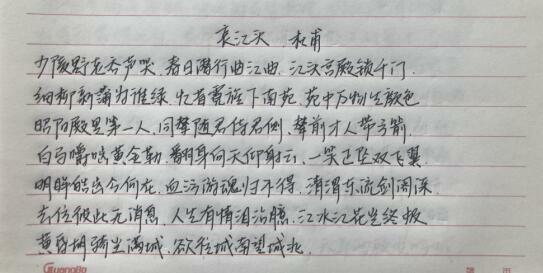 哀江头 杜甫
少陵野老吞声哭，春日潜行曲江曲，江头宫殿锁千门，
细柳新蒲为谁绿，忆昔霓旌下南苑，苑中万物生颜色
昭阳殿里第一人，同辇随君侍君侧，辇前才人带弓箭，
白马嚼啮黄金勒，翻身向天仰射云，一笑正坠双飞翼，
明眸皓齿今何在，血污游魂归不得，清渭东流剑阁深，
去住彼此无消息，人生有情泪沾臆，江水江花岂终极
黄昏胡骑尘满城，欲往城南望城北。
GuangBo